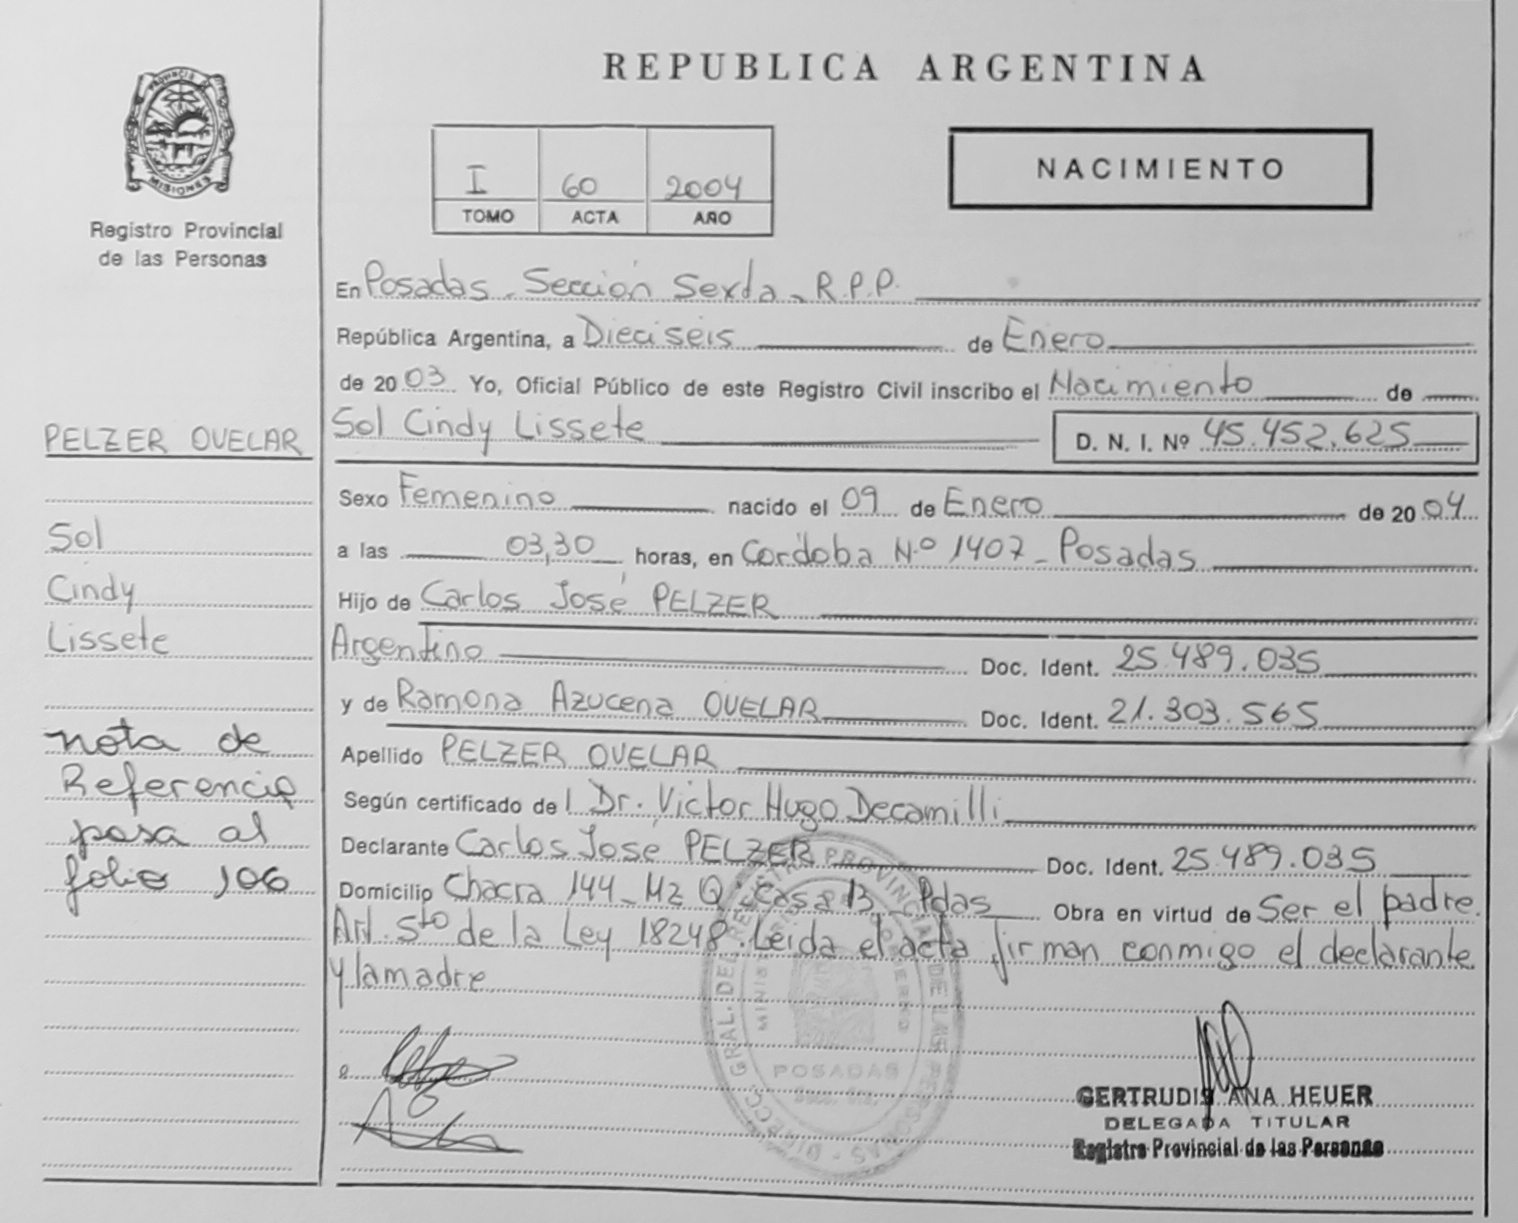 REPUBLICA ARGENTINA
PROVINCIA DE
MISIONES
Registro Provincial
de las Personas
I 60 2004
TOMO ACTA AÑO
NACIMIENTO
En Posadas - Sección Sexta - R.P.P.
República Argentina, a Dieciseis de Enero
de 2003 Yo, Oficial Público de este Registro Civil inscribo el Nacimiento de
Sol Cindy Lissete D. N. I. Nº 45.452.625
Sexo Femenino nacido el 09 de Enero de 2004
a las 03,30 horas, en Cordoba N.º 1407 - Posadas
Hijo de Carlos José PELZER
Argentino Doc. Ident. 25.489.035
y de Ramona Azucena OVELAR Doc. Ident. 21.303.565
Apellido PELZER OVELAR
Según certificado del Dr. Victor Hugo Decamilli
Declarante Carlos José PELZER Doc. Ident. 25.489.035
Domicilio Chacra 144 - Mz Q - Casa 13 - Pdas Obra en virtud de Ser el padre.
Art. 5to de la Ley 18248. Leida el acta firman conmigo el declarante
y la madre
PELZER OVELAR
Sol
Cindy
Lissete
nota de
Referencia
pasa al
folio 106
DIRECC. GRAL. DEL REGISTRO PROVINCIAL DE LAS PERSONAS
MINISTERIO DE GOBIERNO
POSADAS
GERTRUDIS ANA HEUER
DELEGADA TITULAR
Registro Provincial de las Personas